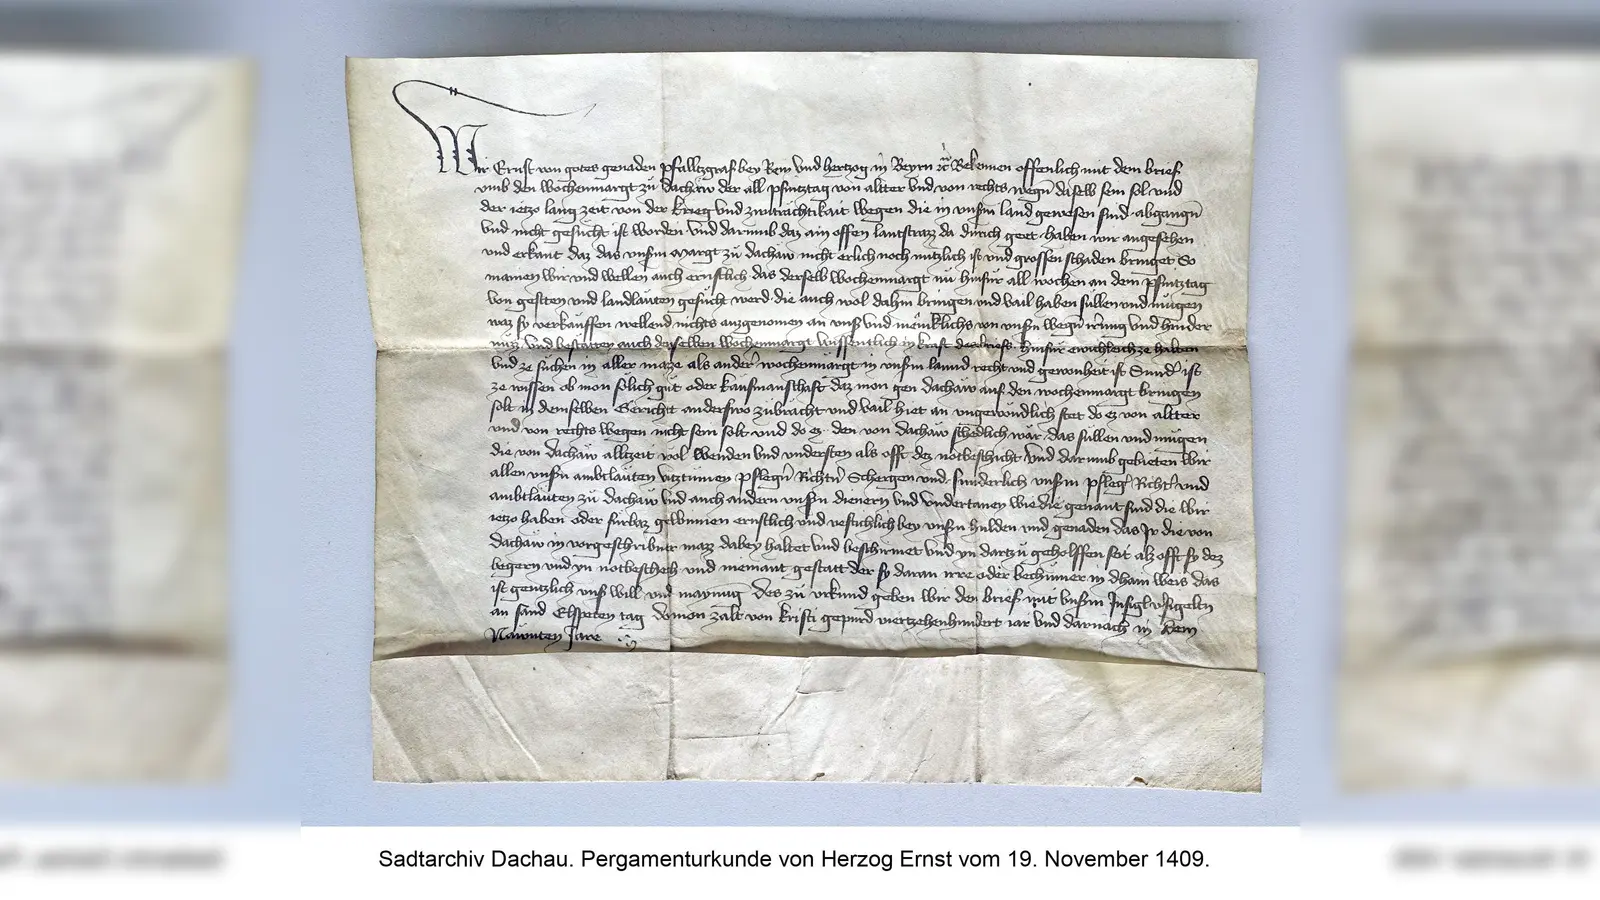 Wir Ernst von gotes genaden Pfallezgraf bey Rein und hertzog in Beyrn etc Bekennen offenlich mit dem brief
umb den Wochenmargt zu Dachaw der all pfintztag von allter und von rechts wegn daselb sein sol und
der ietzo lang zeit von der krieg und zwitrachtikait wegen die in unsm land gewesen sind abgangn
und nicht gesucht ist worden und darumb daz ain offen lantstrazz da durch geet haben wir angesehen
und erkant daz das unsm Margt zu dachaw nicht erlich noch nutzlich ist und grossen schaden bringet So
mainen wir und wellen auch ernstlich das derselb Wochenmargt nu hinfur all wochen an dem pfintztag
von gessten und landlauten gesucht werd die auch wol dahin bringen und vail haben sullen und mugen
waz sy verkauffen wellend nichts auzgenomen an unser und meniklichs von unsn wegn irrung und hinder
nuzz und bestatten auch denselben Wochenmargt wissentlich in kraft des briefs hinfur ewichleich ze halten
und ze suchen in aller mazze als ander wochenmargt in unsm lannd recht und gewonheit ist Sunder ist
ze wissen ob man solich gut oder kaufmanschaft daz man gen dachaw auf den wochenmargt bringen
solt in demselben Gericht anderswo zubracht und vail hiet an ungewondlich stet do ez von allter
und von rechts wegen nicht sein solt und do ez den von dachaw schedlich wär das sullen und mugen
die von Dachaw allzeit wol wenden und understen als offt dez notbeschicht und darumb gebieten wir
allen unsn ambtlauten vitztumen pflegern Richtern Schergen und sunderlich unsm pfleger Richter und
ambtlauten zu dachaw und auch andern unsn dienern und undertanen wie die genant sind die wir
ietzo haben oder furbaz gewunnen ernstlich und vestichlich bey unsn hulden und genaden das Ir die von
dachaw in vorgeschribner mazz dabey haltet und beschirmet und in dartzu geholffen seit alz offt sy dez
begern und in notbeschech und niemant gestatt der sy daran irre oder bechumer in dhain weis das
ist gentzlich unser will und maynung Des zu urkund geben wir den brief mit unsm Insigl vsigeltn
an sand Elspeten tag do man zalt von kristi gepurd viertzehenhundert iar und darnach in dem
Nawnten Jare
Sadtarchiv Dachau. Pergamenturkunde von Herzog Ernst vom 19. November 1409.